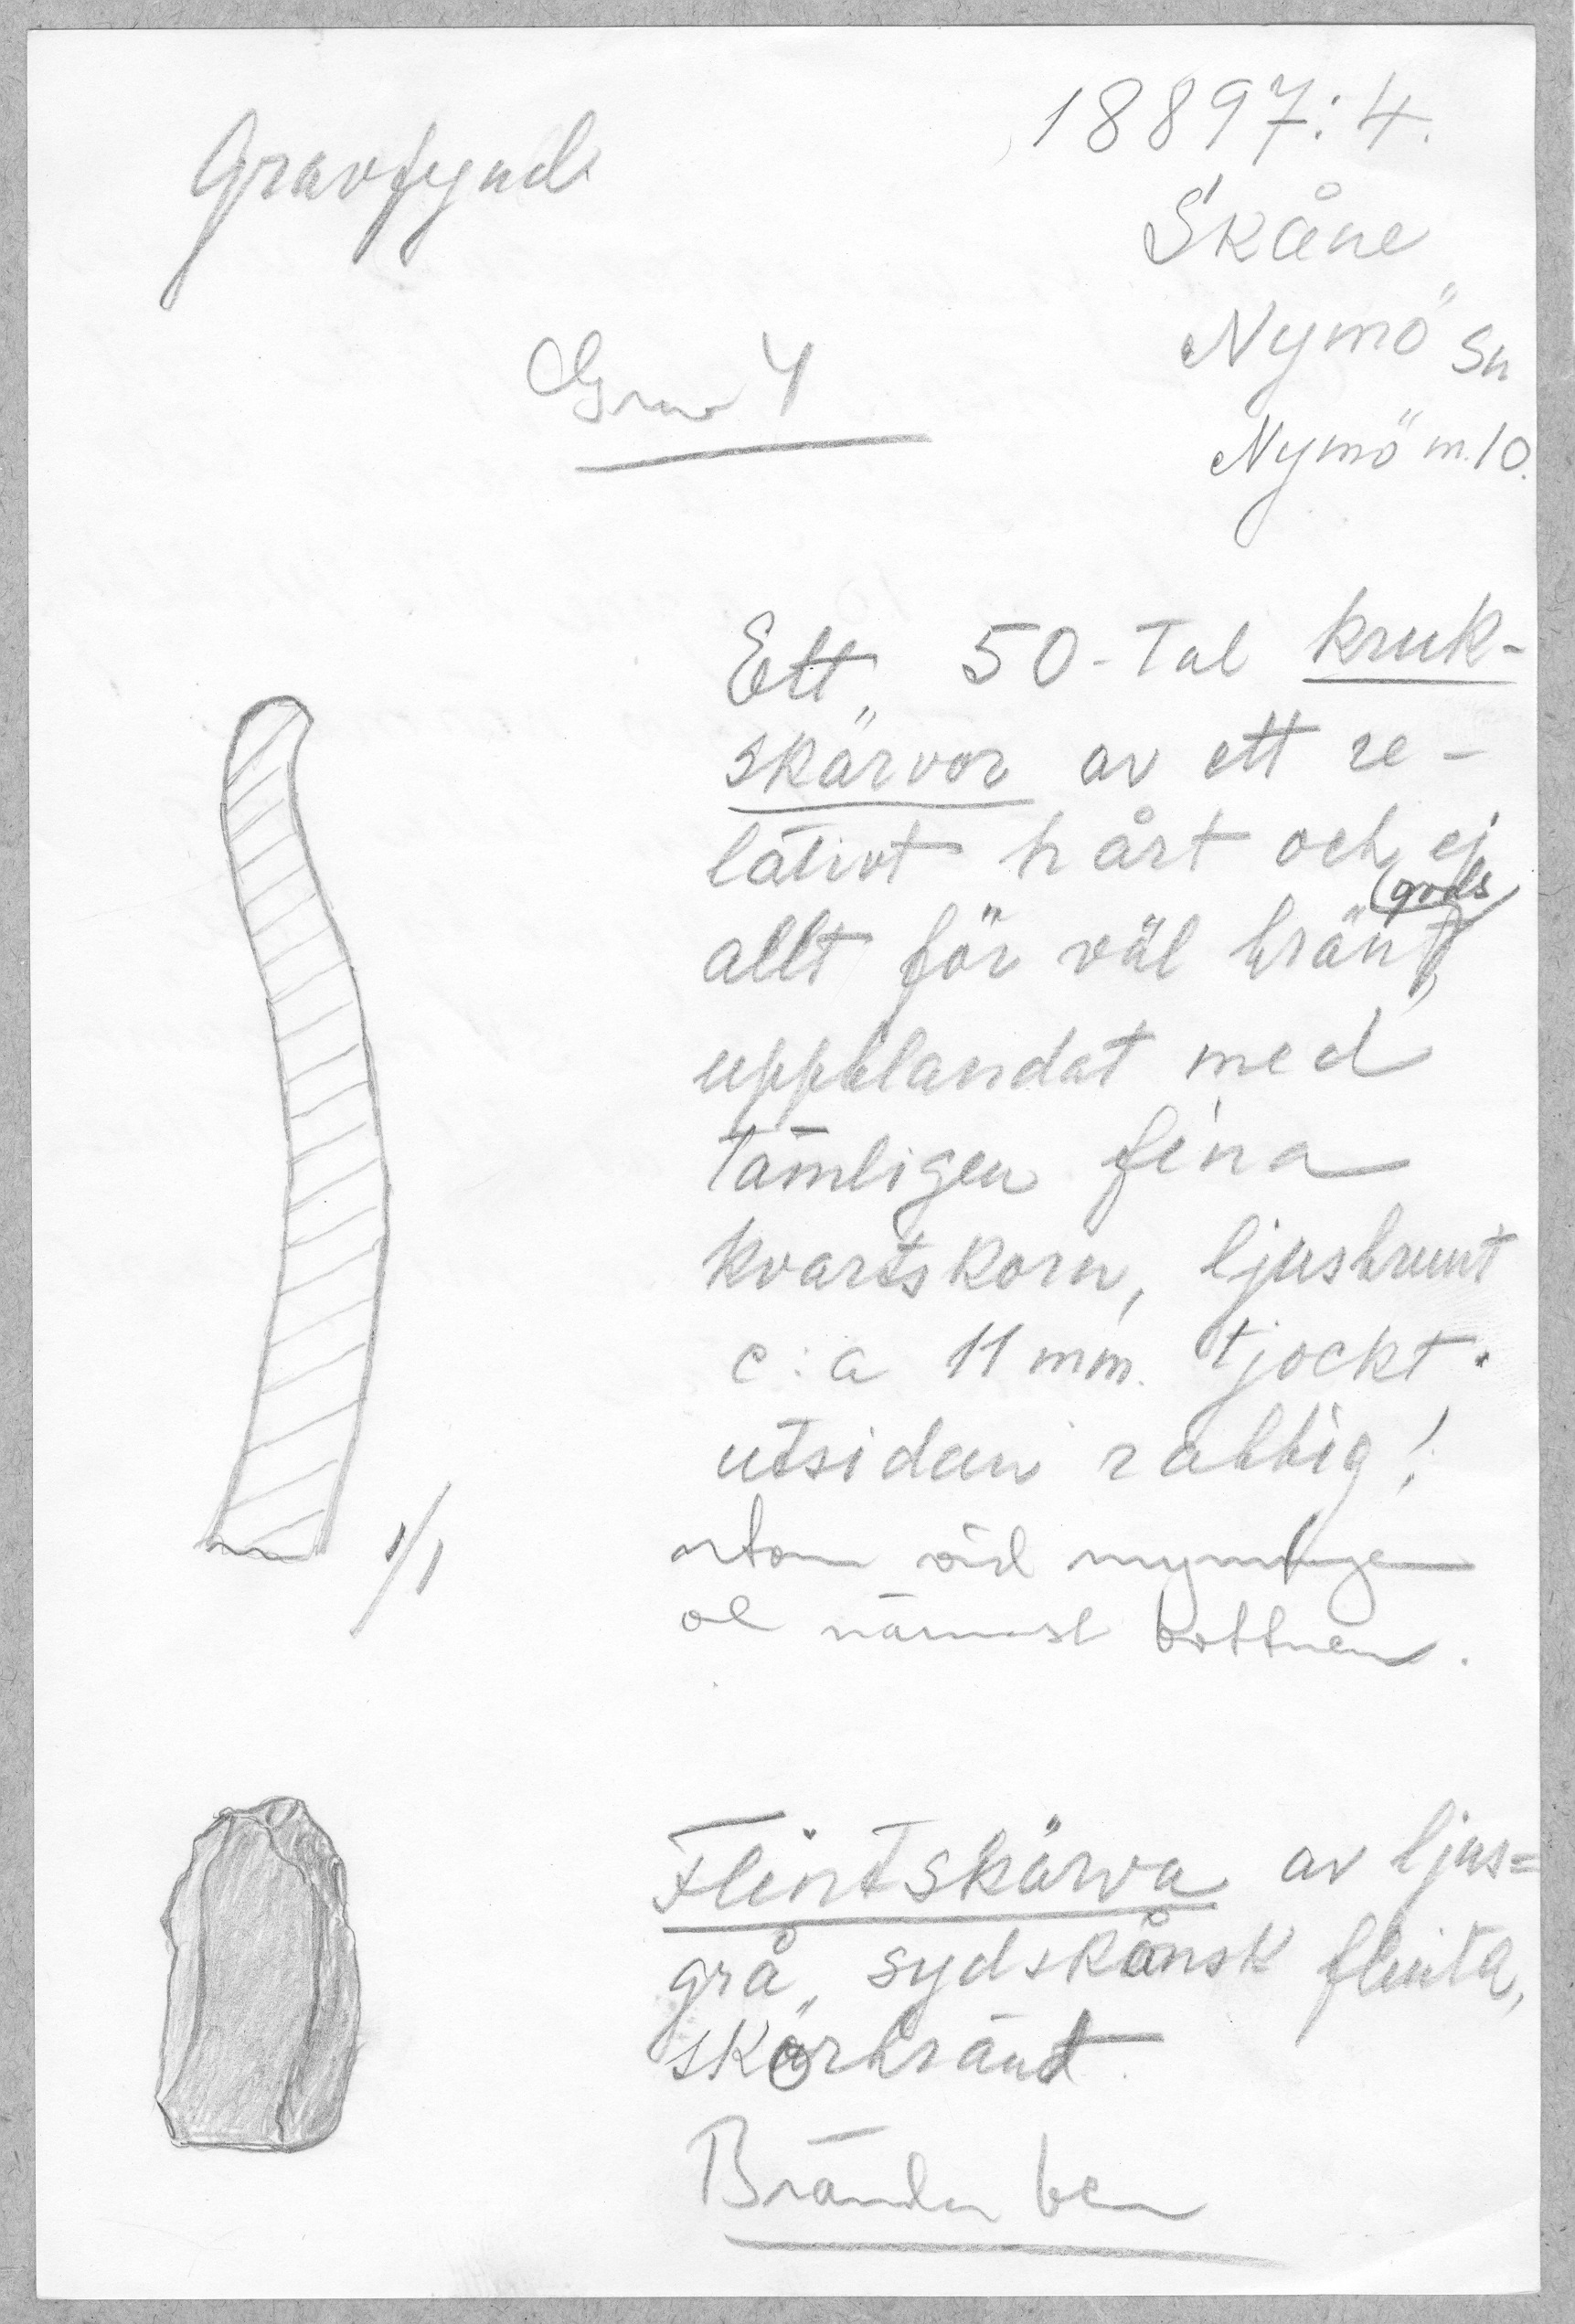 Gravfynd
18897:4.
Skåne
Nymö sn
Nymö m.10.
Grav 4
Ett 50-Tal kruk-
skärvor av ett re-
lativt hårt och ej
gods
allt för väl bränt,
uppblandat med
tämligen fina
kvartskorn, ljusbrunt
c:a 11 mm. tjockt.
utsidan rabbig!
utom vid mynningen
o närmast bottnen.
1/1
Flintskärva av ljus=
grå sydskånsk flinta,
skörbränd.
Brända ben